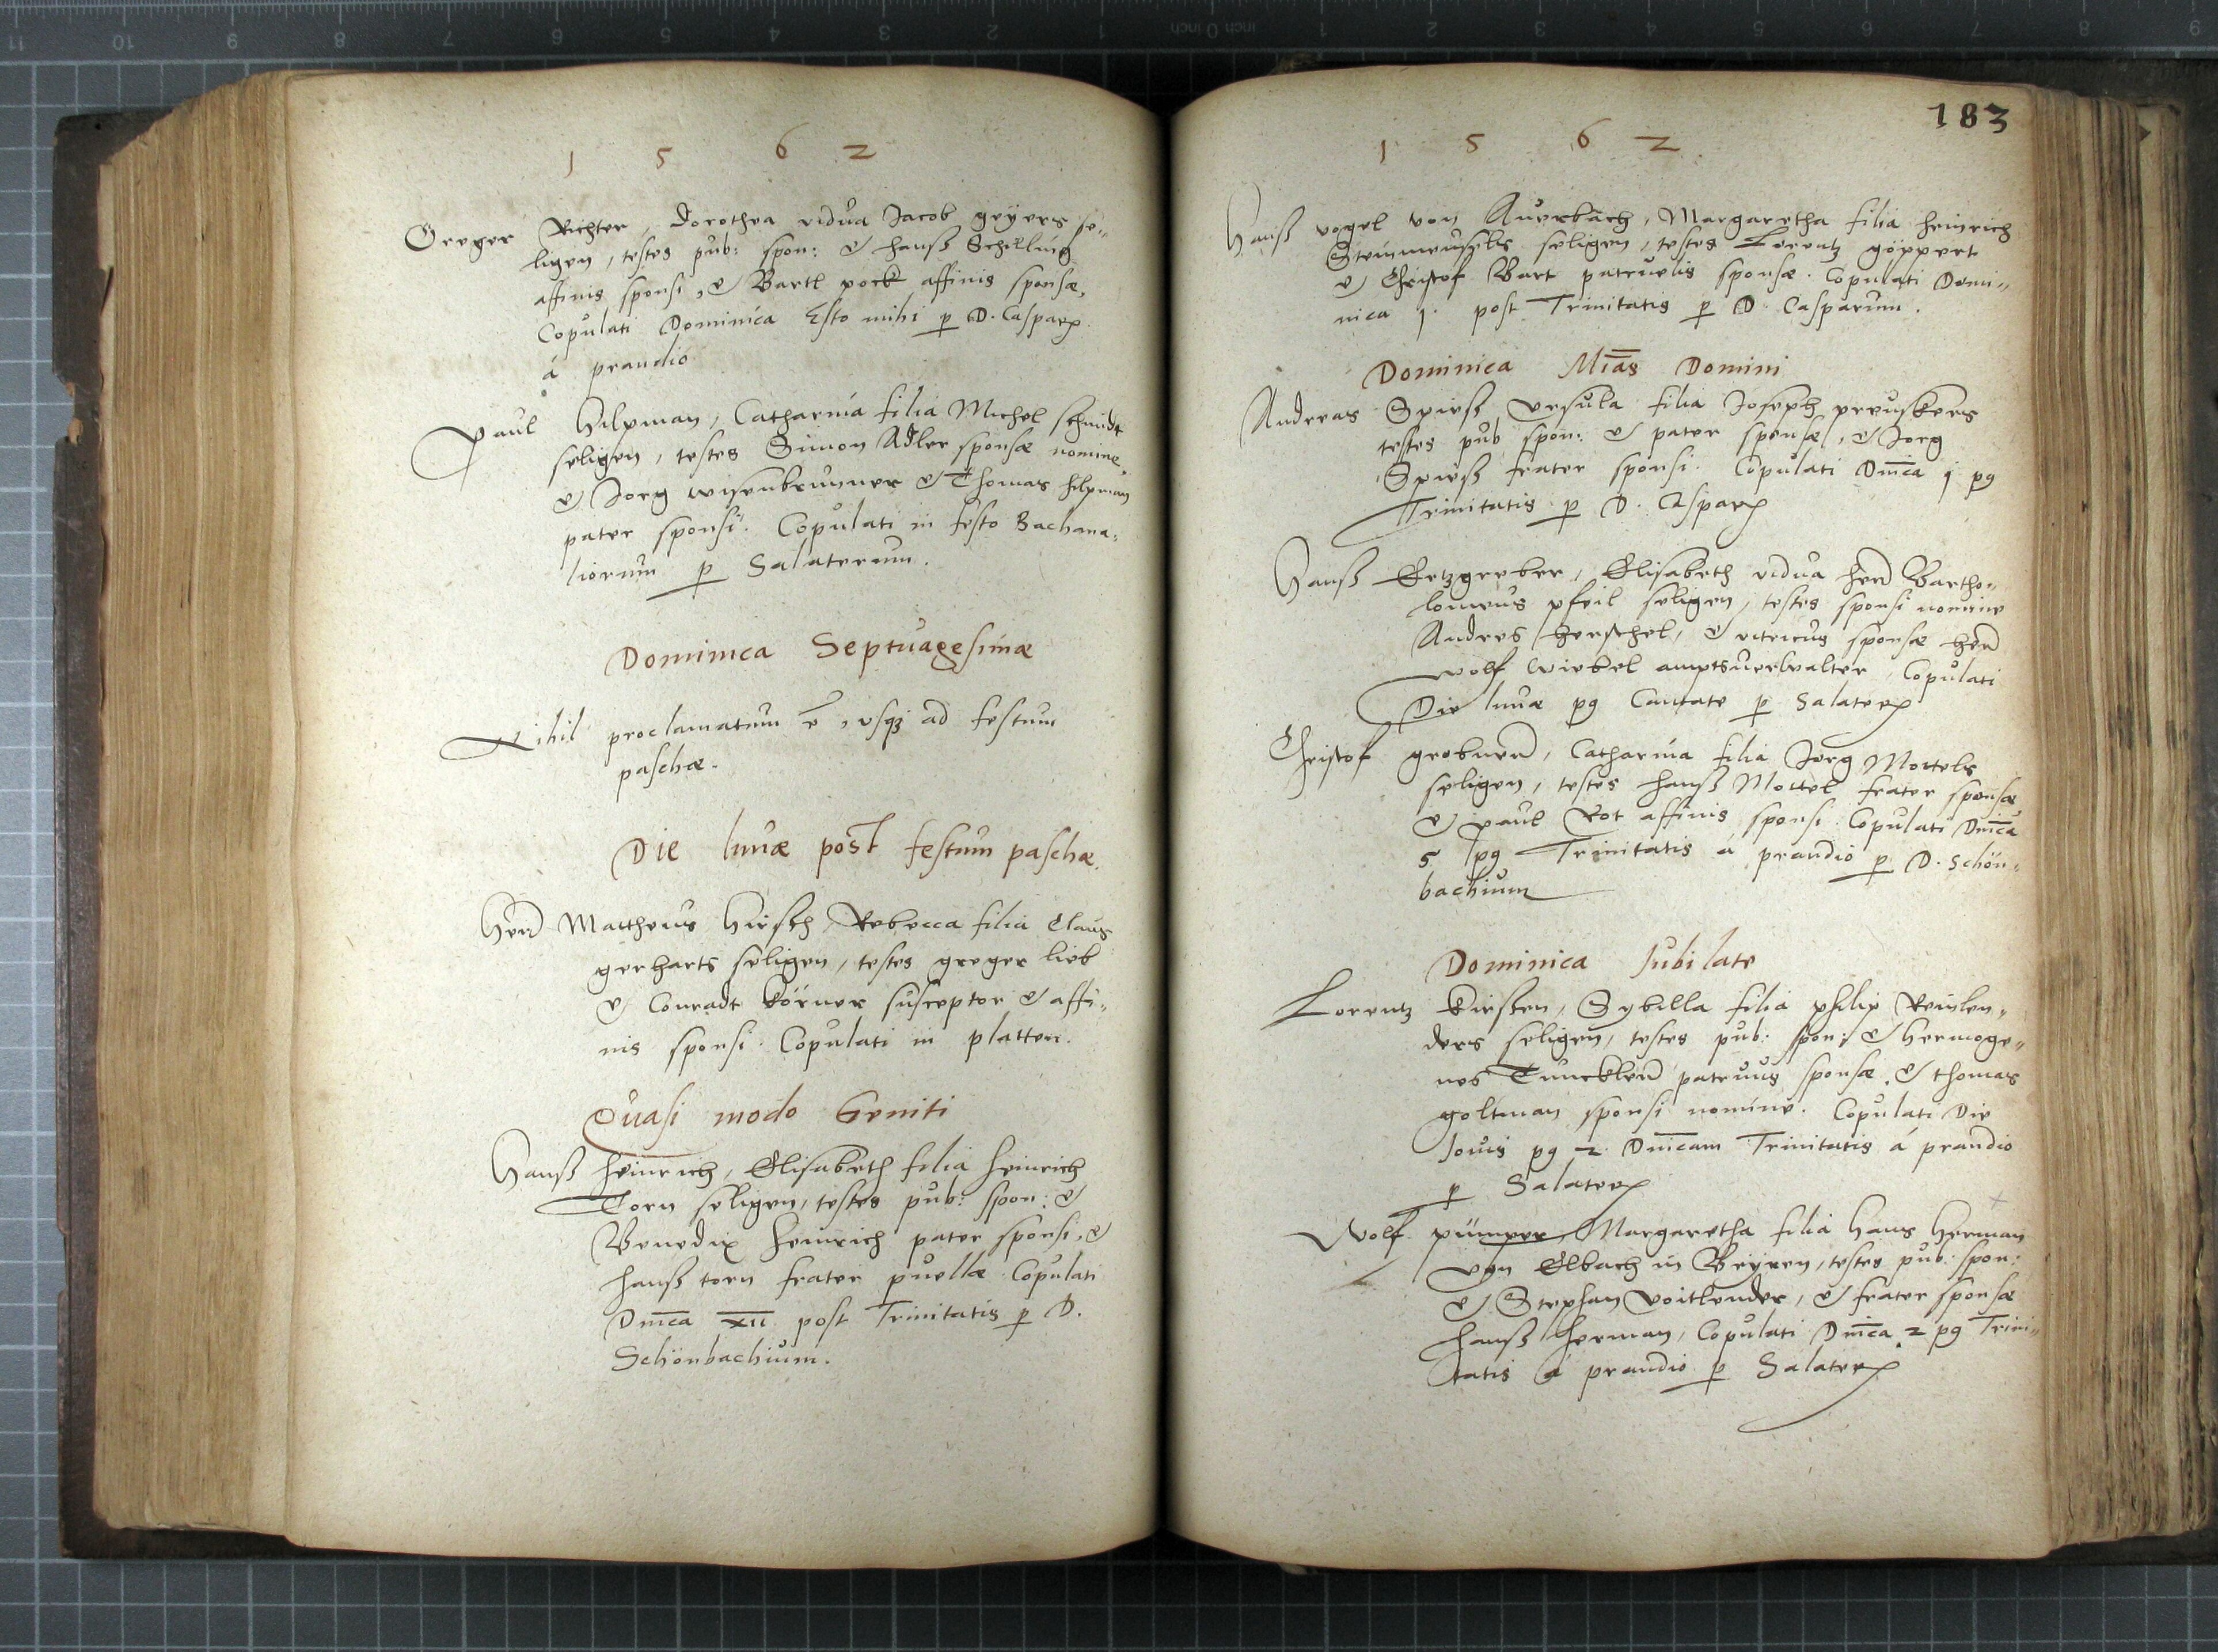 1 5 6 2
Greger Richter, Dorothea vidua Jacob geyers se=
ligen, testes pub: spon: & hanß Schilling
affinis sponsi, & Bartl pock affinis sponsæ,
Copulati Dominica Esto mihi p D. Caspar
á prandio
Paul Hilpman, Catharina filia Michel schmidt
seligen, testes Simon Adler sponsæ nomine,
& Jorg wisenbrunner & Thomas hilpman
pater sponsi. Copulati in festo Bachana=
liorum p Salaterum.
Dominica Septuagesimæ
Nihil proclamatum ē, usq3 ad festum
paschæ.
Die lunæ post festum paschæ.
Herr Mattheus Hirsch, Rebecca filia Claus
gerharts seligen, testes greger lieb
& Conradt körner susceptor & affi=
nis sponsi. Copulati in platten.
Quasi modo Geniti
Hanß heinrich, Elisabeth filia heinrich
Torn seligen, testes pub: spon: &
Benedix heinrich pater sponsi, &
hanß torn frater puellæ. Copulati
Dnica XII post Trinitatis p D.
Schönbachium.
183
1 5 6 2
Hanß vogel von Auerbach, Margaretha filia heinrich
seligen, testes Lorentz göppert
& Christof Bart patruelis sponsæ. Copulati Domi=
nica 1. post Trinitatis p D Casparum.
Dominica Mias Domini
Andreas Spieß Ursula filia Joseph preuskers
testes pub spon: & pater sponsæ, & Jorg
Spieß frater sponsi. Copulati Dnica 1 pg
Trinitatis p D. Caspar
Hanß Ertzgreber, Elisabeth vidua herr Bartho=
lomeus pfeil seligen, testes sponsi nomine
Andres herschel, & vitricus sponsæ herr
wolf Wiebel amptsuerwalter, Copulati
Die lunæ pg Cantate p Salater
Christof grobner, Catharina filia Jorg Mottels
seligen, testes hanß Mottel frater sponsæ
& paul Rot affinis sponsi. Copulati Dnica
5 pg Trinitatis á prandio p D. Schön=
bachium
Dominica Jubilate
Lorentz kirßen, Sybilla filia philip Reinlen=
ders seligen, testes pub: spon: & hermoge=
nes Tunckler patruus sponsæ, & thomas
goltman sponsi nomine. Copulati Die
Jovis pg 2 Dnicam Trinitatis á prandio
p Salater
Wolf pümper, Margaretha filia hans herman
von Elbach in Beyren, testes pub: spon:
& Stephan voitlender, & frater sponsæ
hanß herman, Copulati Dnica 2 pg Trini=
tatis á prandio p Salater